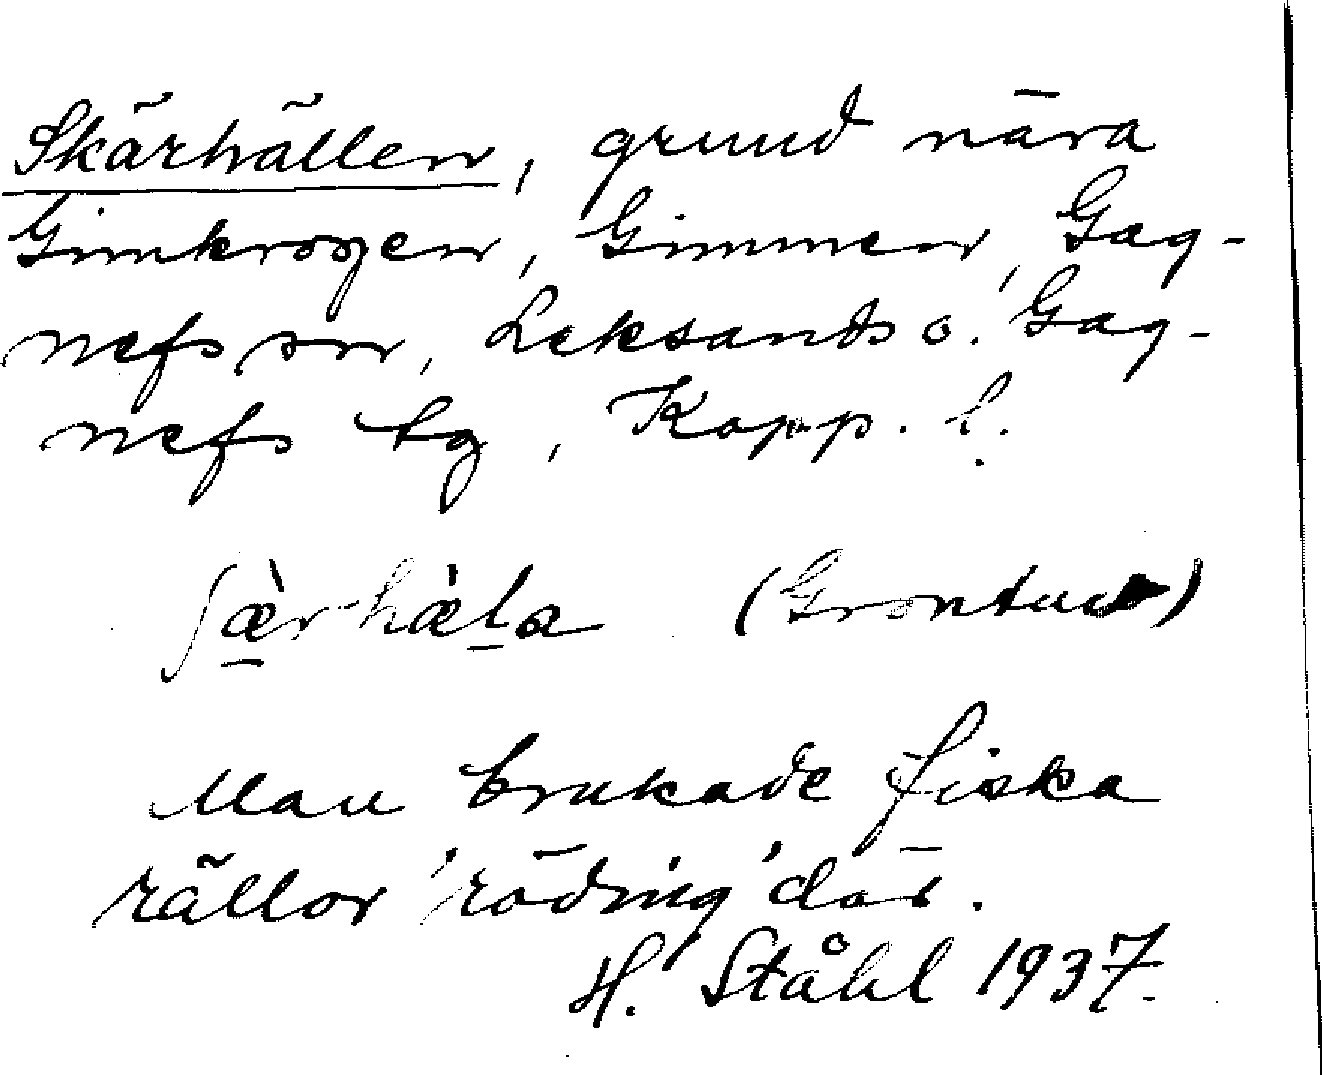 Skärhällen, grund nära
Gimkrogen, Gimmen, Gag-
nefs sn, Leksands o. Gag-
nefs tg, Kopp. l.
ʃæ̀rhæ̀la (Grontu)
Man brukade fiska
rällor 'röding' där.
H. Ståhl 1937.